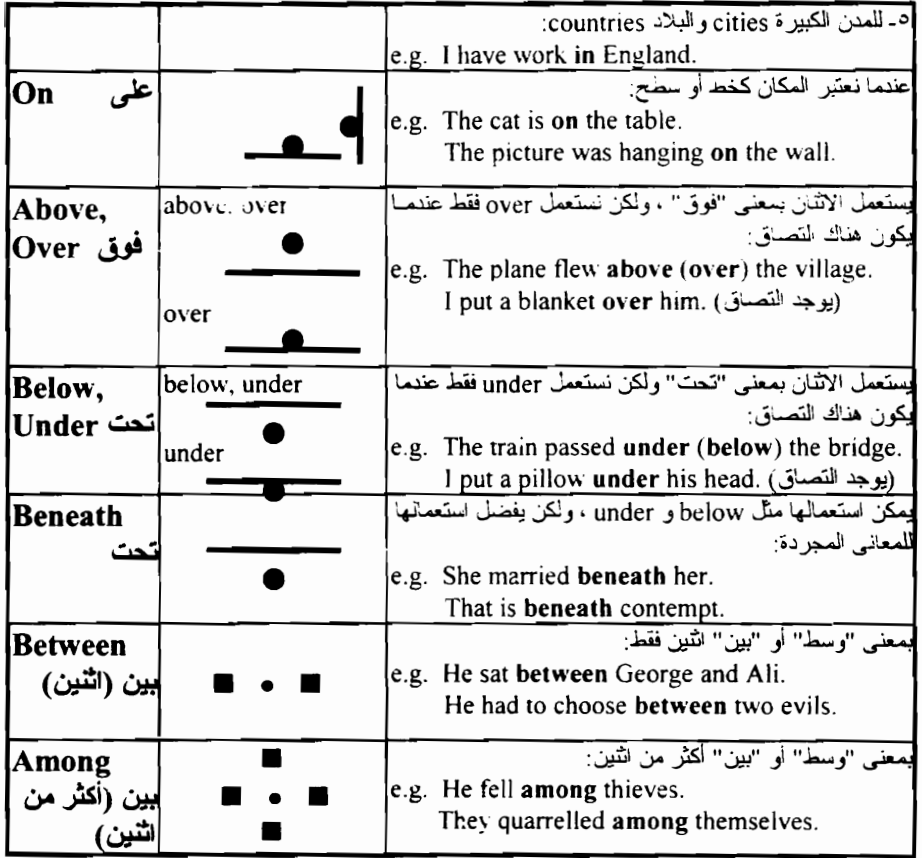 ٥- للمدن الكبيرة cities والبلاد countries:
e.g. I have work in England.
On على
عندما نعتبر المكان كخط أو سطح:
e.g. The cat is on the table.
The picture was hanging on the wall.
Above,
Over فوق
above, over
over
يستعمل الاثنان بمعنى "فوق" ، ولكن نستعمل over فقط عندما
يكون هناك التصاق:
e.g. The plane flew above (over) the village.
I put a blanket over him. (يوجد التصاق)
Below,
Under تحت
below, under
under
يستعمل الاثنان بمعنى "تحت" ولكن نستعمل under فقط عندما
يكون هناك التصاق:
e.g. The train passed under (below) the bridge.
I put a pillow under his head. (يوجد التصاق)
Beneath
تحت
يمكن استعمالها مثل below و under ، ولكن يفضل استعمالها
للمعانى المجردة:
e.g. She married beneath her.
That is beneath contempt.
Between
بين (اثنين)
بمعنى "وسط" أو "بين" اثنين فقط:
e.g. He sat between George and Ali.
He had to choose between two evils.
Among
بين (أكثر من
اثنين)
بمعنى "وسط" أو "بين" أكثر من اثنين:
e.g. He fell among thieves.
They quarrelled among themselves.